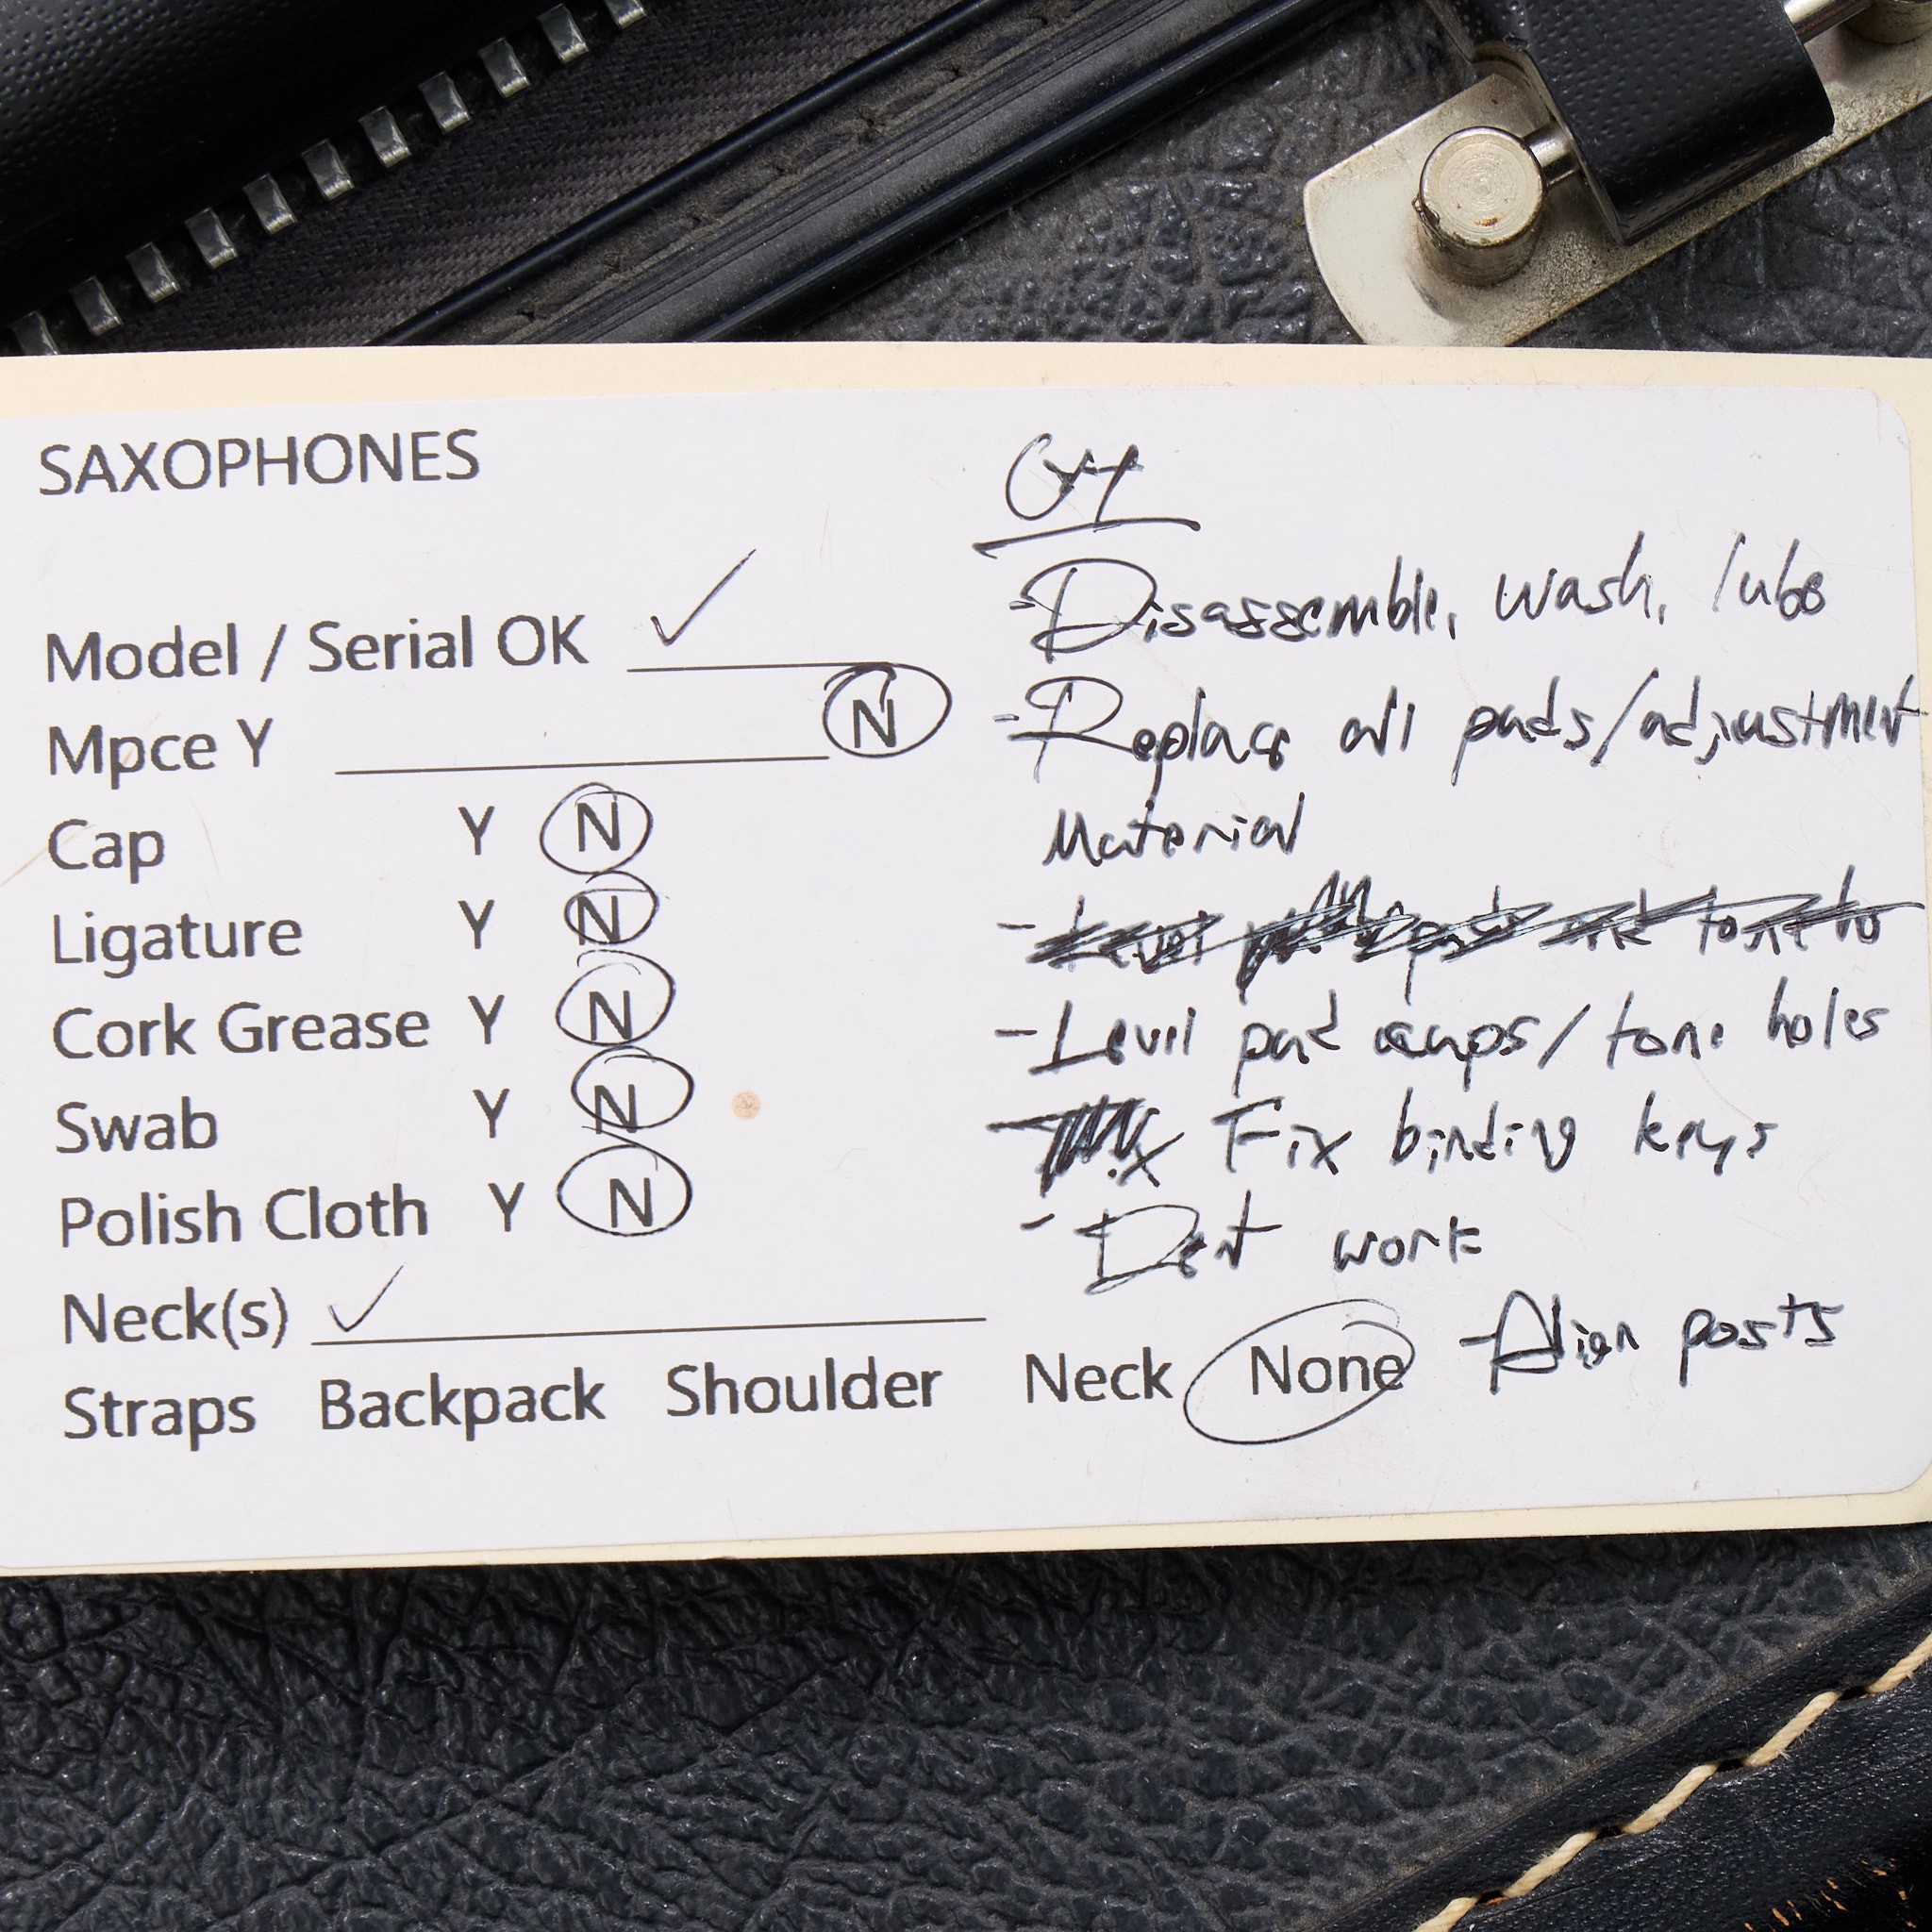 SAXOPHONES
Model / Serial OK ✓
Mpce Y N
Cap Y N
Ligature Y N
Cork Grease Y N
Swab Y N
Polish Cloth Y N
Neck(s) ✓
Straps Backpack Shoulder Neck None
OH
-Disassemble, wash, lube
-Replace all pads/adjustment
Material
-Level pad cups/tone holes
- Fix binding keys
- Dent work
-Align posts